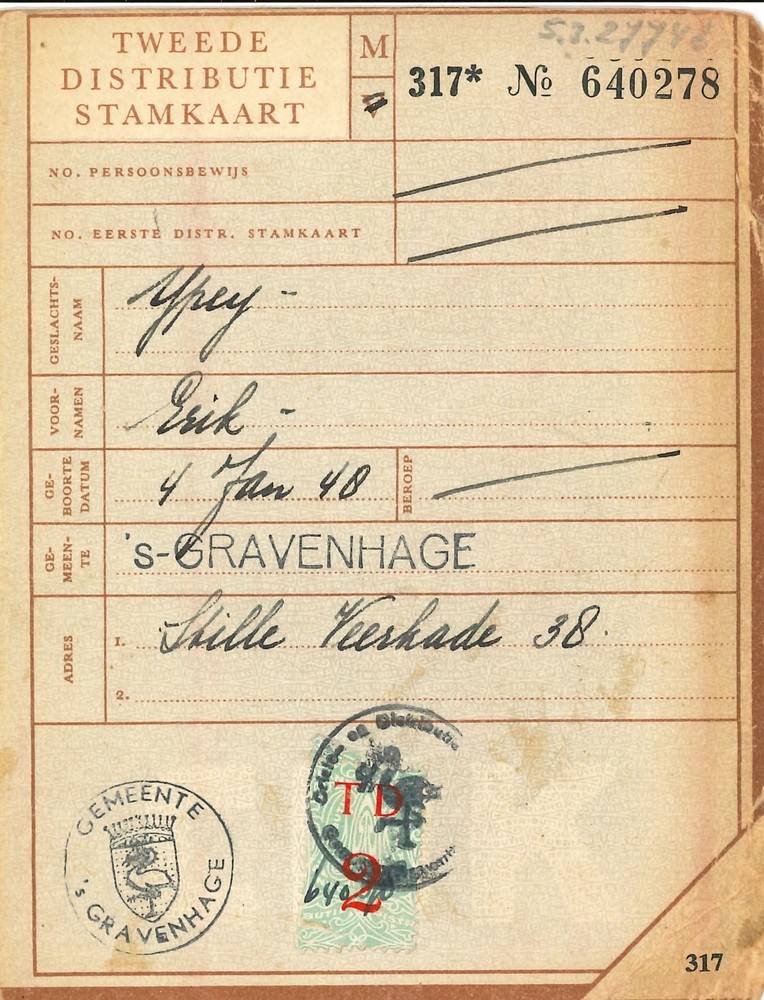 TWEEDE
DISTRIBUTIE
STAMKAART
M
317* № 640278
NO. PERSOONSBEWIJS
NO. EERSTE DISTR. STAMKAART
GESLACHTS-
NAAM
Ypey -
VOOR-
NAMEN
Erik -
GE-
BOORTE
DATUM
4 Jan 40
BEROEP
GE-
MEEN-
TE
's-GRAVENHAGE
ADRES
1. Stille Veerkade 38.
2.
GEMEENTE
's GRAVENHAGE
en Distributie
T D
2
317